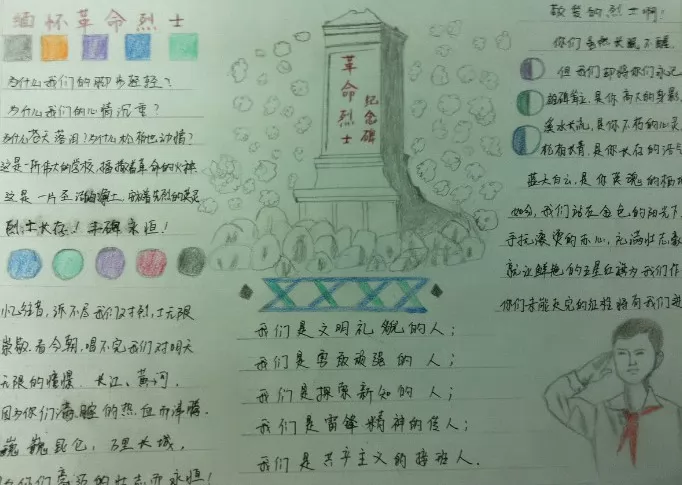 缅怀革命烈士
为什么我们的脚步轻轻？
为什么我们的心情沉重？
为什么苍天落泪？为什么松柏也动情？
这是一所伟大的学校，播撒着革命的火种
这是一片圣洁的
烈士长存！丰碑永恒！
忆往昔，诉不尽我们对烈士无限
崇敬，看今朝，唱不完我们对明天
无限的憧憬。长江、黄河，
因为你们满腔的热血而沸腾。
巍巍昆仑，万里长城，
你们 的壮志而永恒！
革命烈士
纪念碑
我们是文明礼貌的人；
我们是勇敢顽强的人；
我们是探索新知的人；
我们是雷锋精神的传人；
我们是共产主义的接班人．
敬爱的烈士啊！
你们虽然长眠不醒
但我们却将你们永记
是你高大的身影
溪水长流，是你不朽的心灵
松柏长青，是你长存的浩气
蓝天白云，是你英魂的
如今，我们站在金色的阳光下
手托滚烫的赤心，充满壮志豪
就让鲜艳的五星红旗为我们作
你们未能走完的征程将有我们